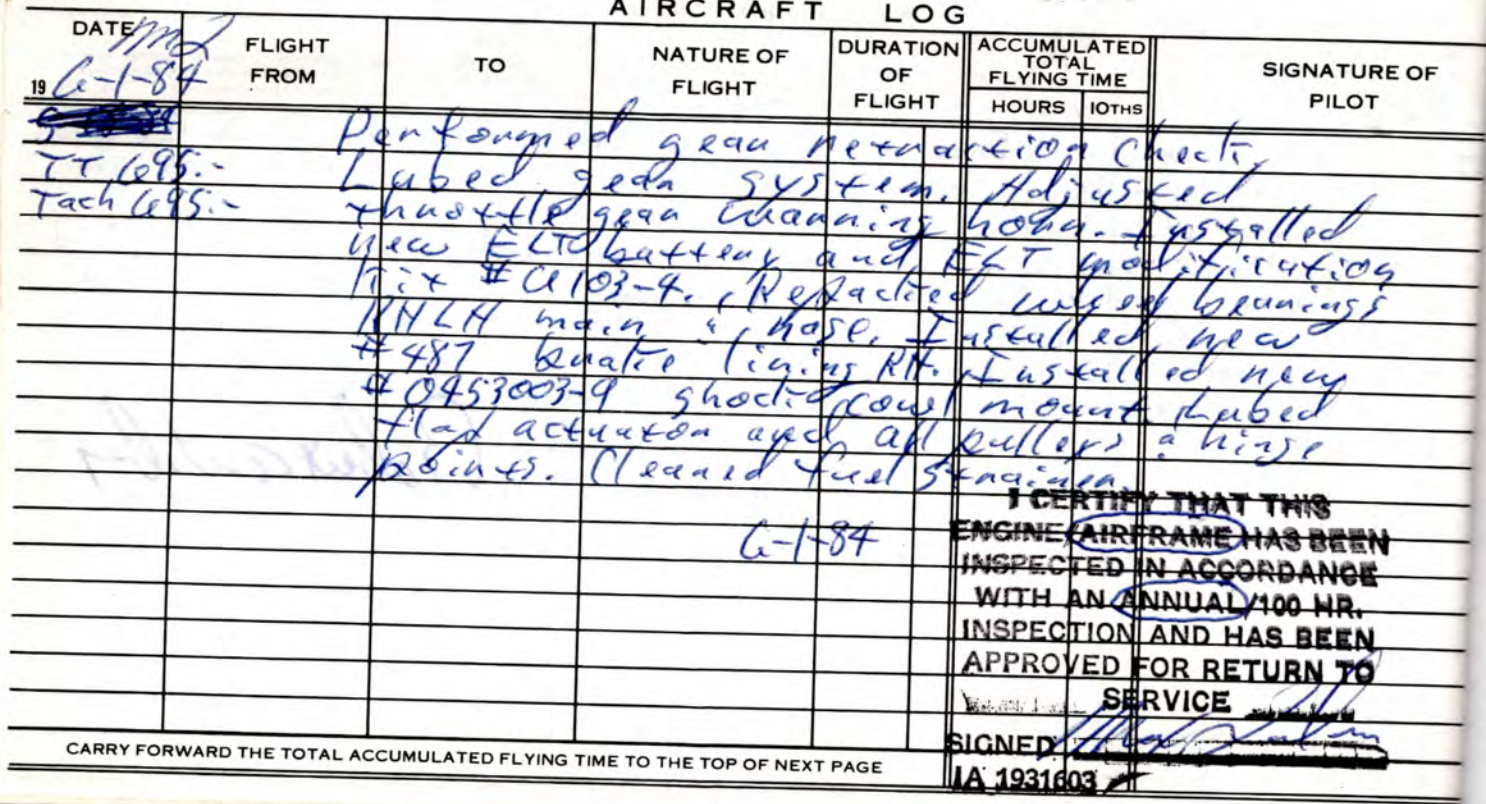 AIRCRAFT LOG
DATE FLIGHT FROM TO NATURE OF FLIGHT DURATION OF FLIGHT ACCUMULATED TOTAL FLYING TIME HOURS 10THS SIGNATURE OF PILOT
19 6-1-84
Performed gear retraction check,
TT 695.- Lubed gear system. Adjusted
Tach 695.- throttle gear warning horn. Installed
new ELT battery and ELT modification
kit #U103-4. Repacked wheel bearings
RH LH main & nose. Installed new
#487 brake lining RH. Installed new
#0453003-9 shock cowl mount. Lubed
flap actuator and all pulleys & hinge
points. Cleaned fuel strainer.
6-1-84
I CERTIFY THAT THIS
ENGINE/AIRFRAME HAS BEEN
INSPECTED IN ACCORDANCE
WITH AN ANNUAL/100 HR.
INSPECTION AND HAS BEEN
APPROVED FOR RETURN TO
SERVICE
SIGNED
IA 1931603
CARRY FORWARD THE TOTAL ACCUMULATED FLYING TIME TO THE TOP OF NEXT PAGE